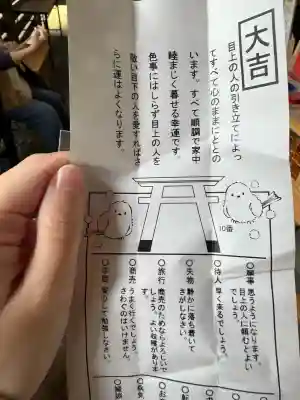 大吉
目上の人の引き立てによっ
てすべて心のままにととの
います。すべて順調で家中
睦まじく暮せる幸運です。
色事にはしらず目上の人を
敬い目下の人を愛すればさ
らに運はよくなります。
10番
○願事 思うようになります。
目上の人に頼むとよい
でしょう。
○待人 早く来るでしょう。
○失物 静かに落ち着いて
さがしなさい。
○旅行 商売のためならよろしいで
しょう。よい収穫があります。
○商売 うまく行くでしょう。
さわぐのはいけません。
○学問 安心して勉強しなさい。